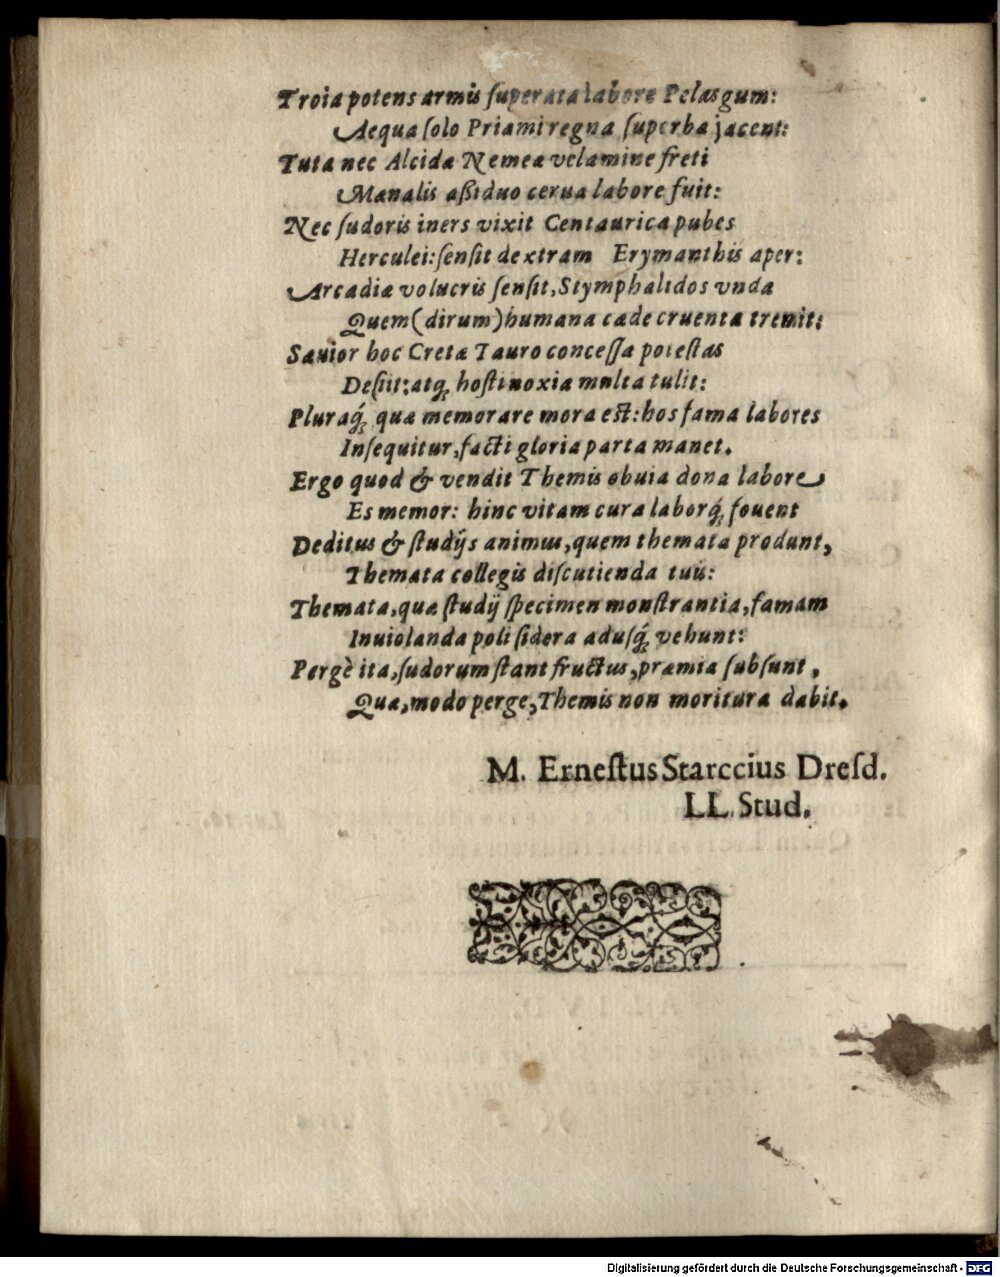 Troia potens armis ſuperata labore Pelasgum:
Aequa ſolo Priami regna ſuperba jacent:
Tuta nec Alcidæ Nemeæ velamine freti
Mænalis aßiduo cerua labore fuit:
Nec ſudoris iners vixit Centaurica pubes
Herculei: ſenſit dextram Erymanthis aper:
Arcadiæ volucris ſenſit, Stymphalidos vnda
Quem (dirum) humana cæde cruenta tremit:
Sæuior hoc Cretæ Tauro conceſſa poteſtas
Deſiit: atq́; hoſti noxia multa tulit:
Pluraq́; quæ memorare mora eſt: hos fama labores
Inſequitur, facti gloria parta manet.
Ergo quod & vendit Themis obuia dona labore
Es memor: hinc vitam cura laborq́; fouent
Deditus & ſtudijs animus, quem themata produnt,
Themata collegis diſcutienda tuis:
Themata, quæ ſtudij ſpecimen monſtrantia, famam
Inuiolanda poli ſidera aduſq́; vehunt:
Pergè ita, ſudorum ſtant fructus, præmia ſubſunt,
Quæ, modo perge, Themis non moritura dabit.
M. Erneſtus Starccius Dreſd.
LL. Stud.
Digitalisierung gefördert durch die Deutsche Forschungsgemeinschaft - DFG